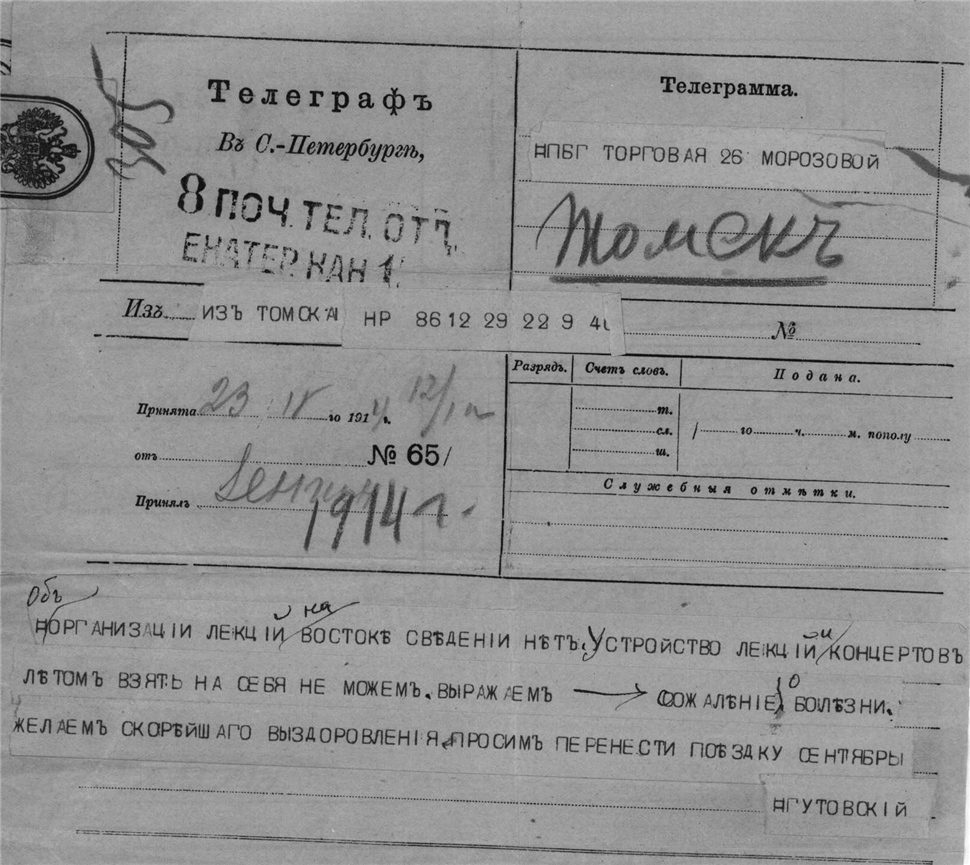 Телеграфъ
Въ С.-Петербургѣ,
8 ПОЧ. ТЕЛ. ОТД.
ЕКАТЕР. КАН
Телеграмма.
НПБГ ТОРГОВАЯ 26 МОРОЗОВОЙ
Томскъ
Изъ ИЗЪ ТОМСКА НР 8612 29 22 9 4 №
Разрядъ. Счетъ словъ. Подана.
Принята 23 IV го 1914 г. 12/
т.
сл. / го ч. м. пополу
ш.
отъ № 65/
Принялъ
1914 г.
Служебныя отмѣтки.
Объ на и
НОРГАНИЗАЦІИ ЛЕКЦІЙ ВОСТОКѢ СВѢДЕНІИ НѢТЪ. УСТРОЙСТВО ЛЕКЦІЙ и КОНЦЕРТОВЪ
ЛѢТОМЪ ВЗЯТЬ НА СЕБЯ НЕ МОЖЕМЪ. ВЫРАЖАЕМЪ → СОЖАЛѢНІЕ О БОЛѢЗНИ.
ЖЕЛАЕМЪ СКОРѢЙШАГО ВЫЗДОРОВЛЕНІЯ ПРОСИМЪ ПЕРЕНЕСТИ ПОѢЗДКУ СЕНТЯБРЫ
НГУТОВСКІЙ